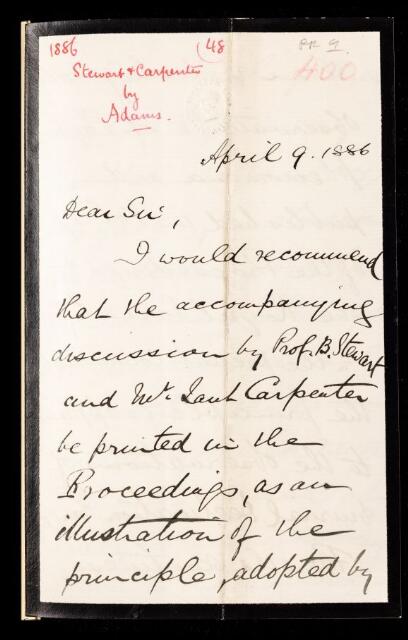 1886
(48
RR 9
400
Stewart & Carpenter
by
Adams.
April 9. 1886
Dear Sir,
I would recommend
that the accompanying
discussion by Prof. B. Stewart
and Mr. Lant Carpenter
be printed in the
Proceedings, as an
illustration of the
principle, adopted by